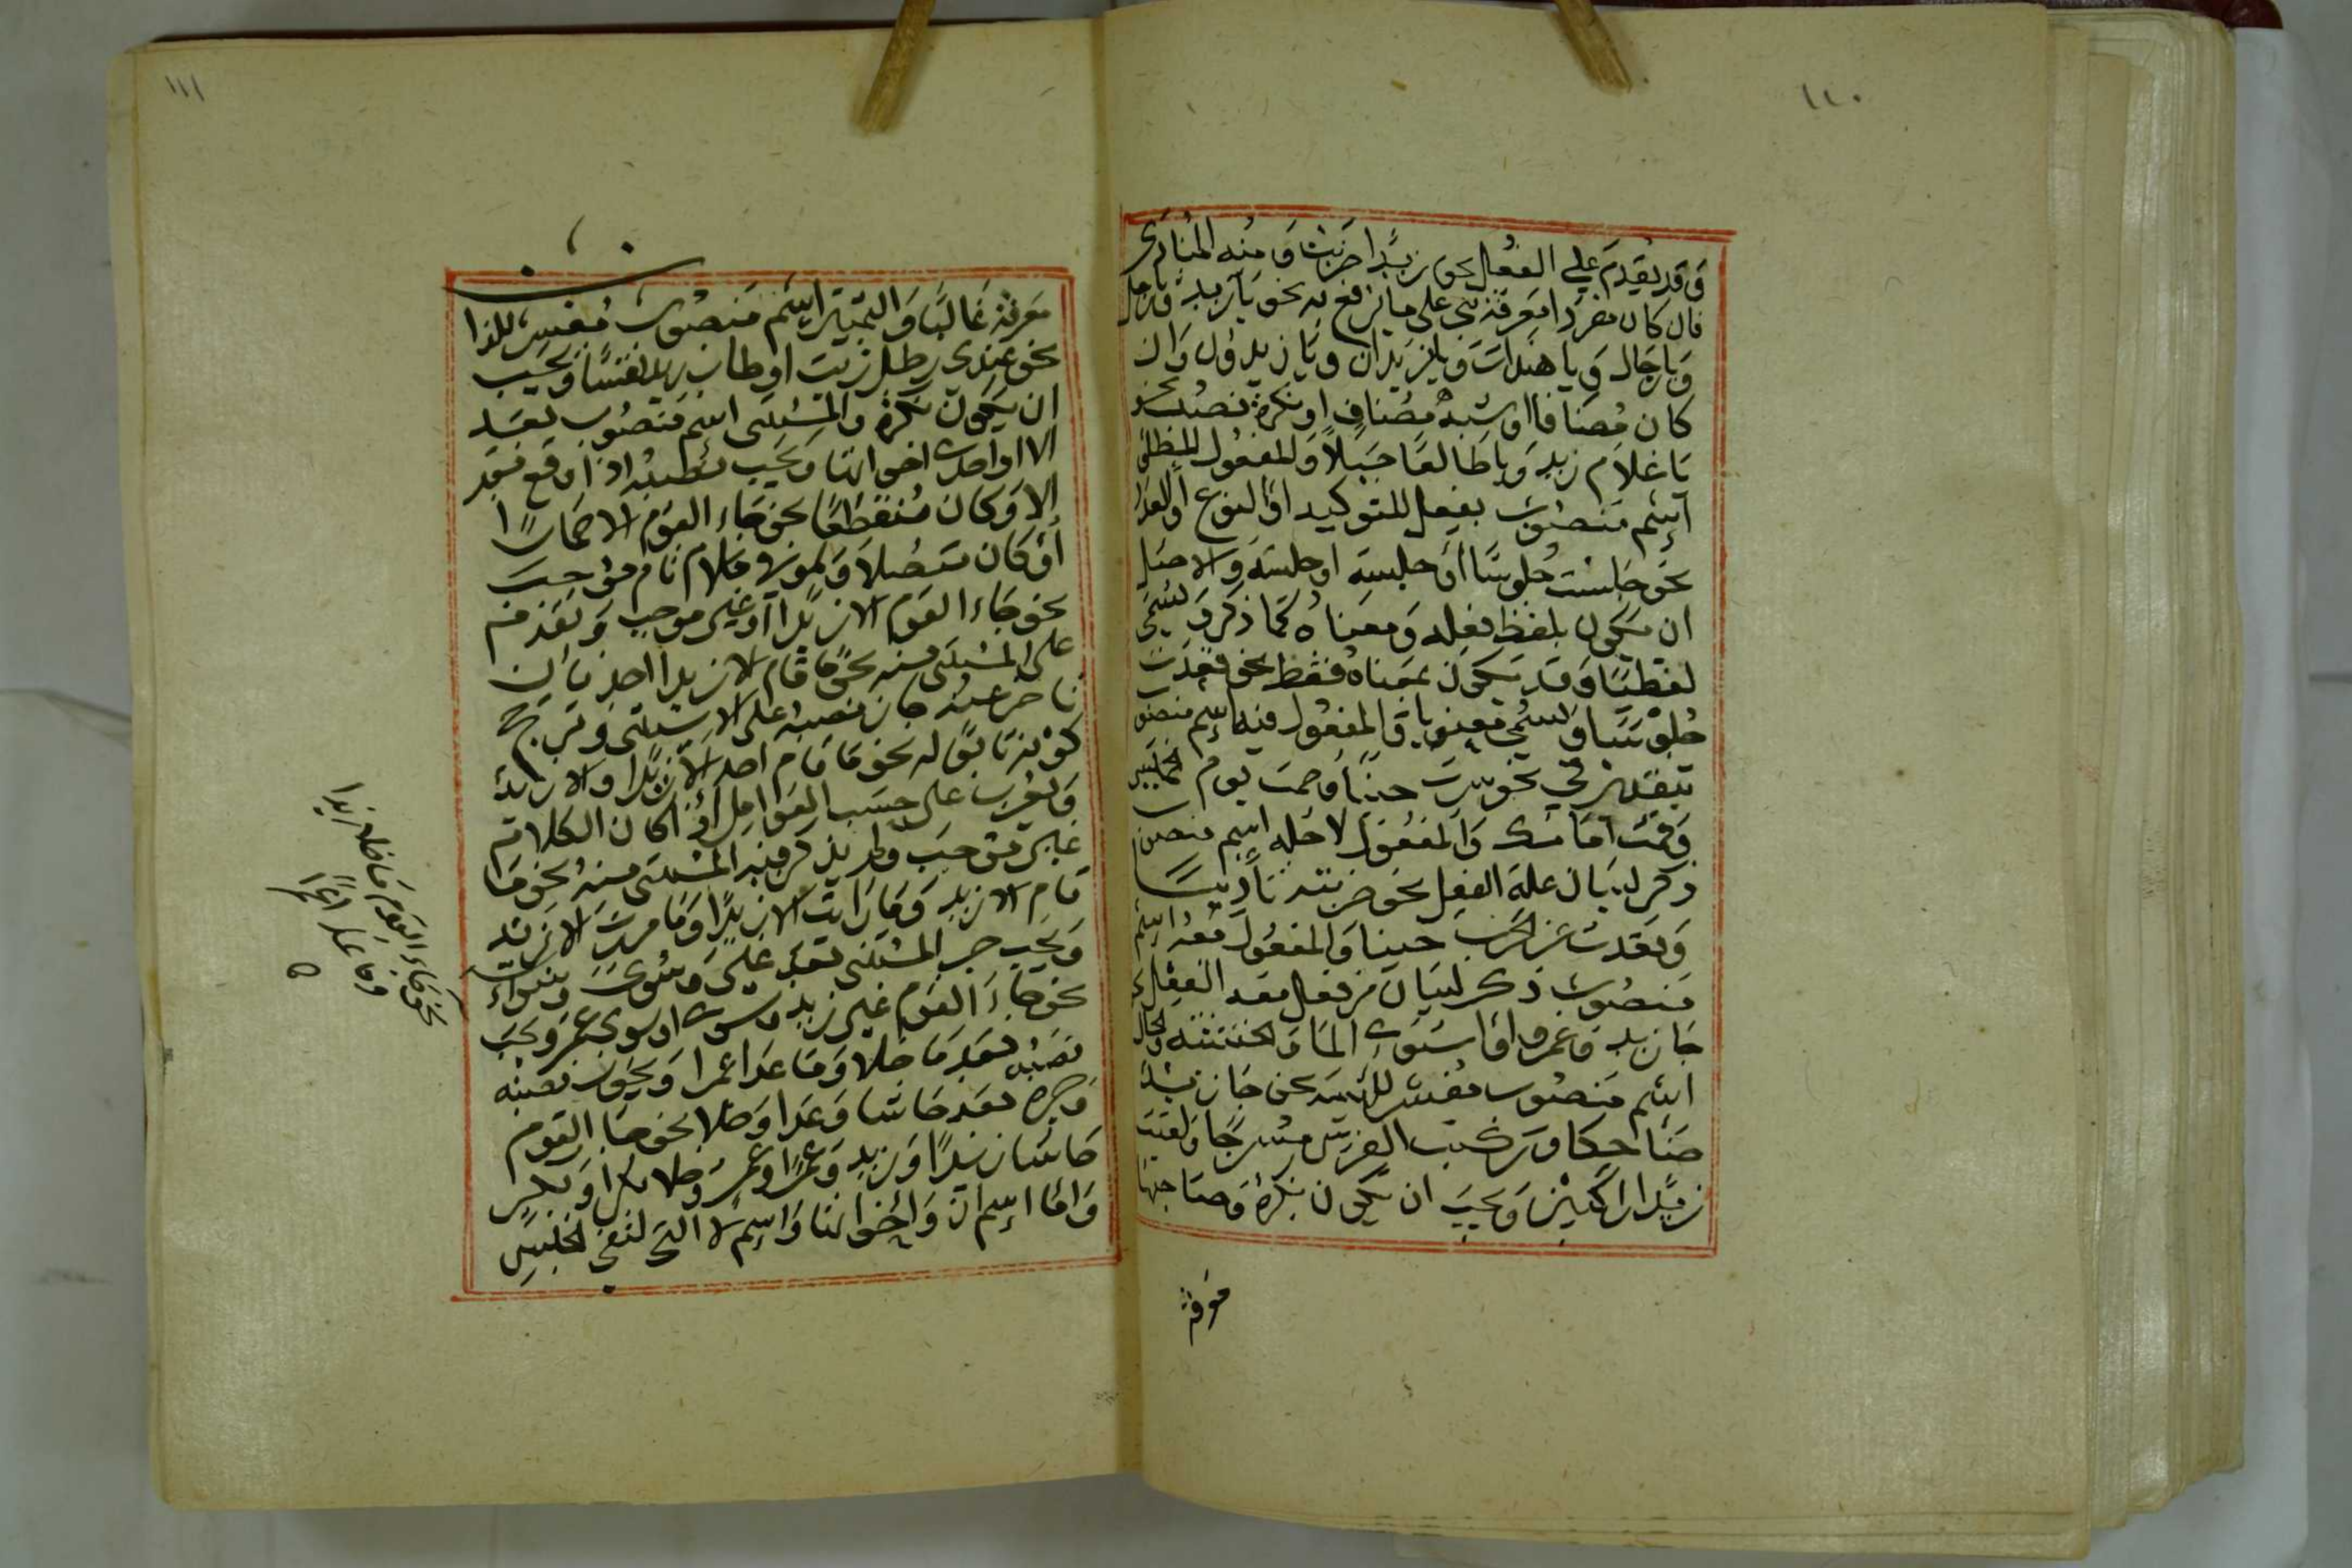 ١١٠
وقد يقدم على الفعل نحو زيدا ضربت ومنه المنادى
فان كان مفردا معرفة بني على ما يرفع به نحو يا زيد ويا رجل
ويا رجال ويا هندات ويا زيدان ويا زيدون وان
كان مضافا او شبه مضاف او نكرة نصب نحو
يا غلام زيد ويا طالعا جبلا والمفعول المطلق
اسم منصوب بفعل للتوكيد او النوع او العدد
نحو جلست جلوسا او جلسة او جلسة والاصل
ان يكون بلفظ فعله ومعناه كما ذكر ويسمى
لفظيا وقد يكون بمعناه فقط نحو قعدت
جلوسا ويسمى معنويا والمفعول فيه اسم منصوب
بتقدير في نحو سرت حينا وصمت يوم الخميس
وقمت امامك والمفعول لاجله اسم منصوب
ذكر لبيان علة الفعل نحو ضربته تأديبا
وقعدت عن الحرب جبنا والمفعول معه اسم
منصوب ذكر لبيان من فعل معه الفعل نحو
جا زيد وعمرو او استوى الما والخشبة والحال
اسم منصوب مفسر للهيئة نحو جا زيد
ضاحكا وركبت الفرس مسرجا ولقيت
زيدا راكبين ويجب ان يكون نكرة وصاحبها
معرفة
١١١
معرفة غالبا والتمييز اسم منصوب مفسر للذا
نحو عندي رطل زيت او طاب زيد نفسا ويجب
ان يكون نكرة والمستثنى اسم منصوب بعد
الا او احدى اخواتها ويجب نصبه اذا وقع بعد
الا وكان منقطعا نحو جاء القوم الا حمارا
او كان متصلا والموت كلام تام موجب
نحو جاء القوم الا زيدا او غير موجب وتقدم
على المستثنى منه نحو ما قام الا زيدا احد فان
تاخر عنه جاز نصبه على الاستثنى وترجح
كونه تابعا له نحو ما قام احد الا زيدا والا زيد
ويعرب على حسب العوامل اذا كان الكلام
غير موجب ولم يذكر فيه المستثنى منه نحو ما
قام الا زيد وما رايت الا زيدا وما مررت الا بزيد
ويجب جر المستثنى بعد غير وسوى وسواء
نحو جاء القوم غير زيد وسوى او سوى عمر ويجب
نصبه بعد ما خلا وما عدا عمرا ويجوز نصبه
وجره بعد حاشا وعدا وخلا نحو جا القوم
حاشا زيدا وزيد وعمرا وعمر وخلا بكرا وبكر
واما اسم ان واخواتها واسم لا التي لنفي الجنس
نحو جاء القوم ما خلا زيدا
وما عدا عمرا